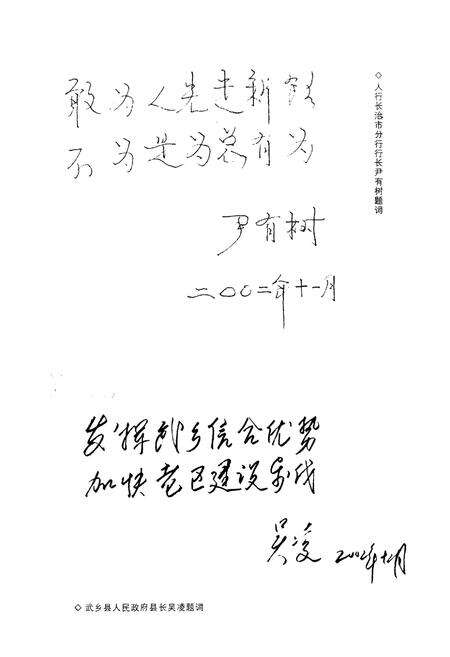 敢为人先走新路
不为是为总有为
尹有树
二〇〇二年十一月
◇人行长治市分行行长尹有树题词
发挥武乡信合优势
加快老区建设步伐
吴凌
2002年十月
◇武乡县人民政府县长吴凌题词